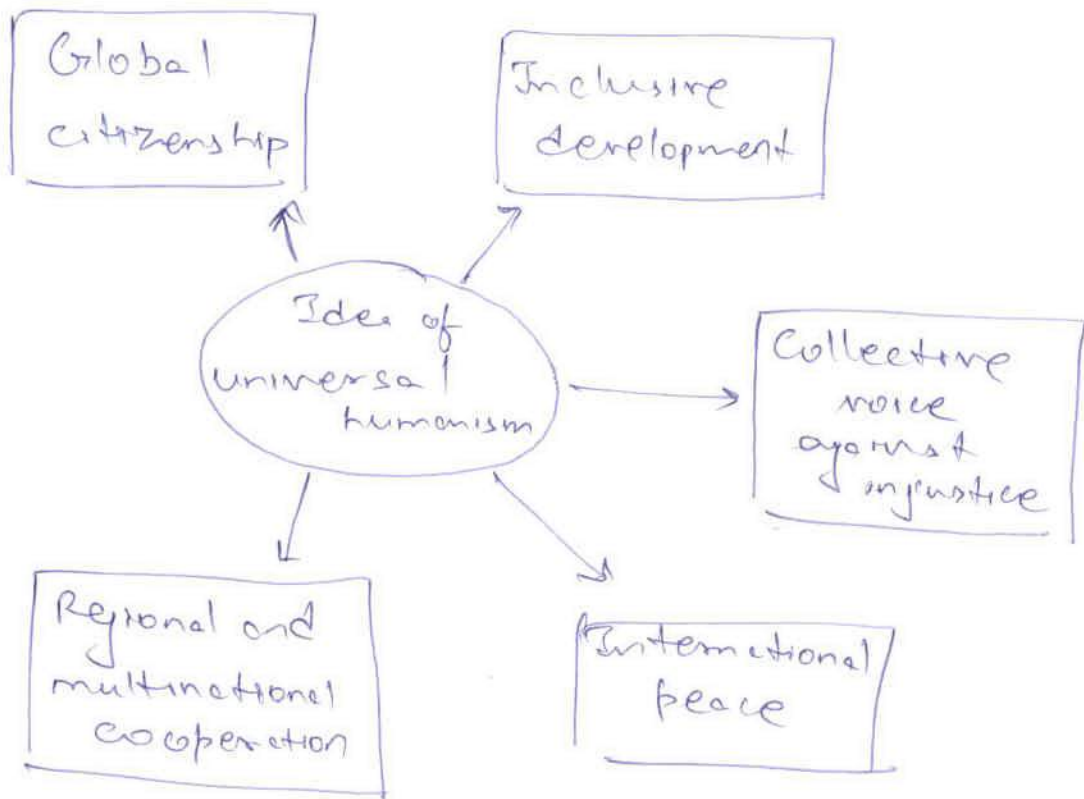 Global
citizenship
Inclusive
development
Idea of
universal
humanism
Collective
voice
against
injustice
Regional and
multinational
cooperation
International
peace